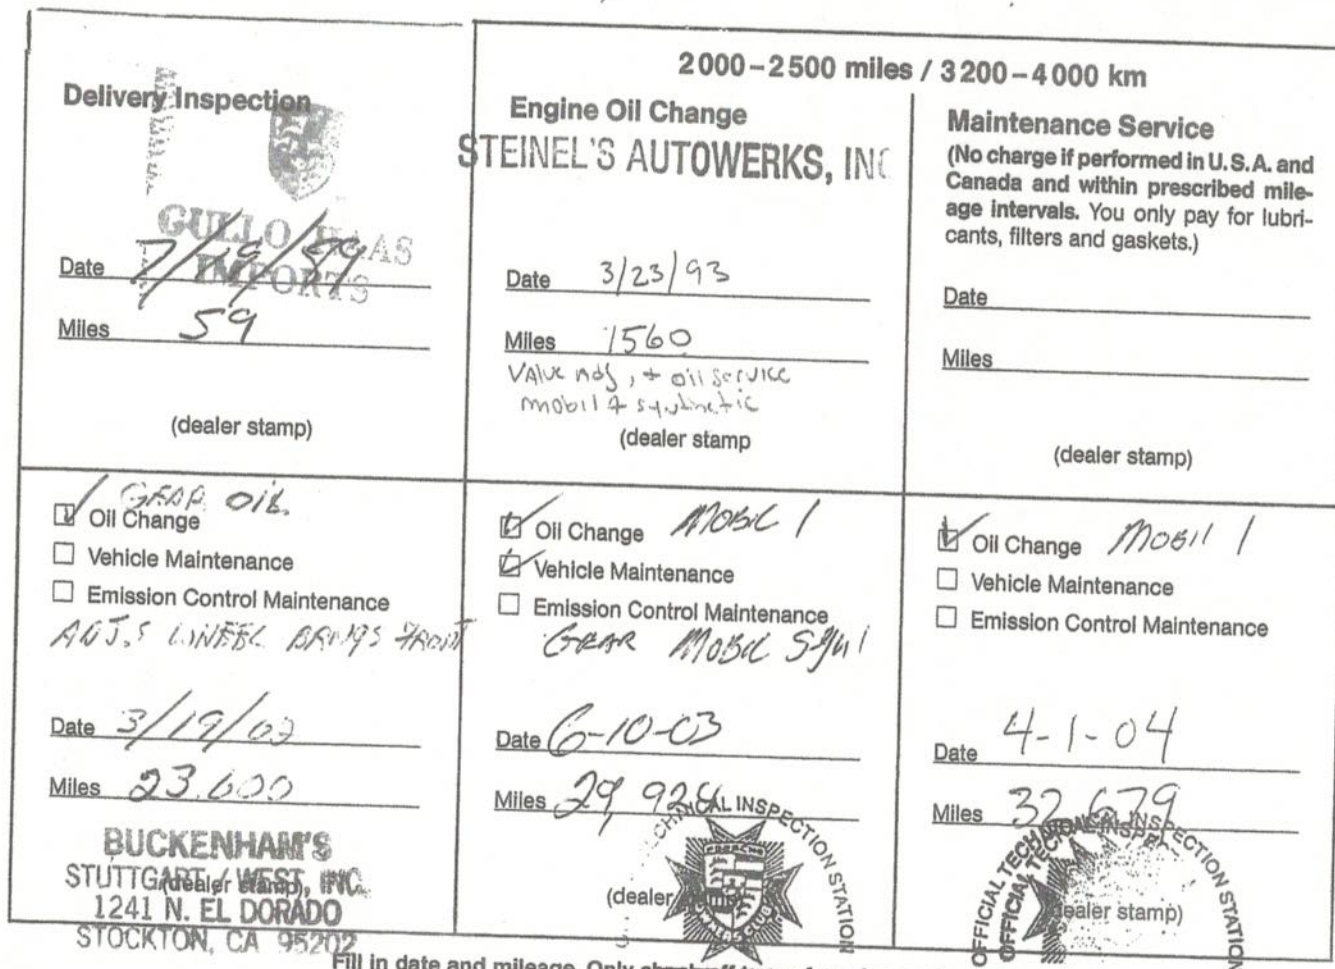 2000–2500 miles / 3200–4000 km
Delivery Inspection
GULLO HAAS
IMPORTS
Date 7/19/89
Miles 59
(dealer stamp)
Engine Oil Change
STEINEL'S AUTOWERKS, INC
Date 3/23/93
Miles 1560
Valve adj, + oil service
mobil 1 synthetic
(dealer stamp
Maintenance Service
(No charge if performed in U.S.A. and
Canada and within prescribed mile-
age intervals. You only pay for lubri-
cants, filters and gaskets.)
Date
Miles
(dealer stamp)
GEAR OIL
Oil Change
Vehicle Maintenance
Emission Control Maintenance
ADJ.S WHEEL BRNGS FRONT
Date 3/19/02
Miles 23,600
BUCKENHAM'S
STUTTGART / WEST, INC.
(dealer stamp)
1241 N. EL DORADO
STOCKTON, CA 95202
Oil Change MOBIL 1
Vehicle Maintenance
Emission Control Maintenance
GEAR MOBIL
Date 6-10-03
Miles 29,924
CHNICAL INSPECTION STATION
PORSCHE
(dealer
Oil Change MOBIL 1
Vehicle Maintenance
Emission Control Maintenance
Date 4-1-04
Miles 32,679
OFFICIAL TECHNICAL INSPECTION STATION
OFFICIAL TECHNICAL INSPE
dealer stamp)
Fill in date and mileage. Only